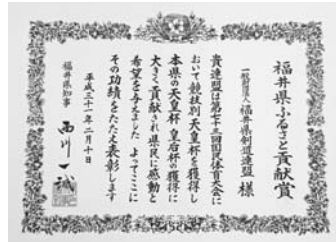 福井県ふるさと貢献賞
一般財団法人 福井県剣道連盟 様
貴連盟は第七十三回国民体育大会に
おいて競技別天皇杯を獲得し
本県の天皇杯 皇后杯の獲得に
大きく貢献され県民に感動と
希望を与えました よってここに
その功績をたたえ表彰します
平成三十一年二月十日
福井県知事 西川一誠